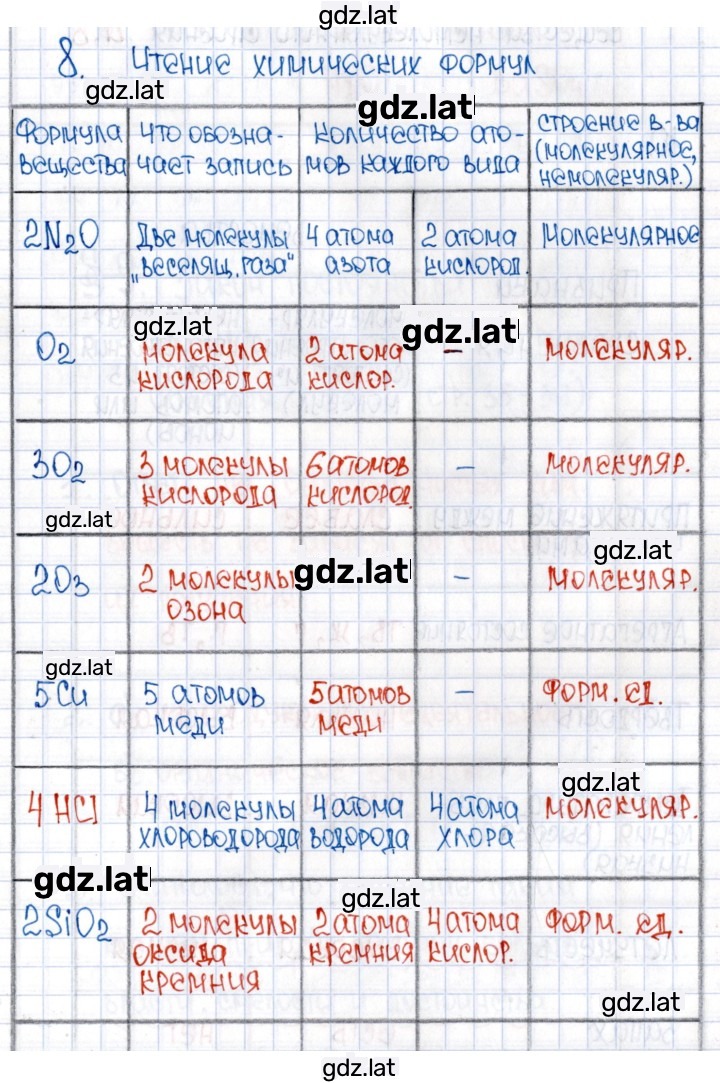 gdz.lat
8. Чтение химических формул
gdz.lat
gdz.lat
Формула вещества
Что обозна-
чает запись
Количество ато-
мов каждого вида
строение в-ва
(молекулярное,
немолекуляр.)
2N₂O
Две молекулы
„веселящ. газа"
4 атома
азота
2 атома
кислород.
Молекулярное
gdz.lat
gdz.lat
O₂
молекула
кислорода
2 атома
кислор.
–
молекуляр.
3O₂
3 молекулы
кислорода
6 атомов
кислород.
–
молекуляр.
gdz.lat
gdz.lat
2O₃
2 молекулы
озона
gdz.lat
–
молекуляр.
gdz.lat
5Cu
5 атомов
меди
5 атомов
меди
–
форм. ед.
gdz.lat
4 HCl
4 молекулы
хлороводорода
4 атома
водорода
4 атома
хлора
молекуляр.
gdz.lat
gdz.lat
2SiO₂
2 молекулы
оксида
кремния
2 атома
кремния
4 атома
кислор.
форм. ед.
gdz.lat
gdz.lat